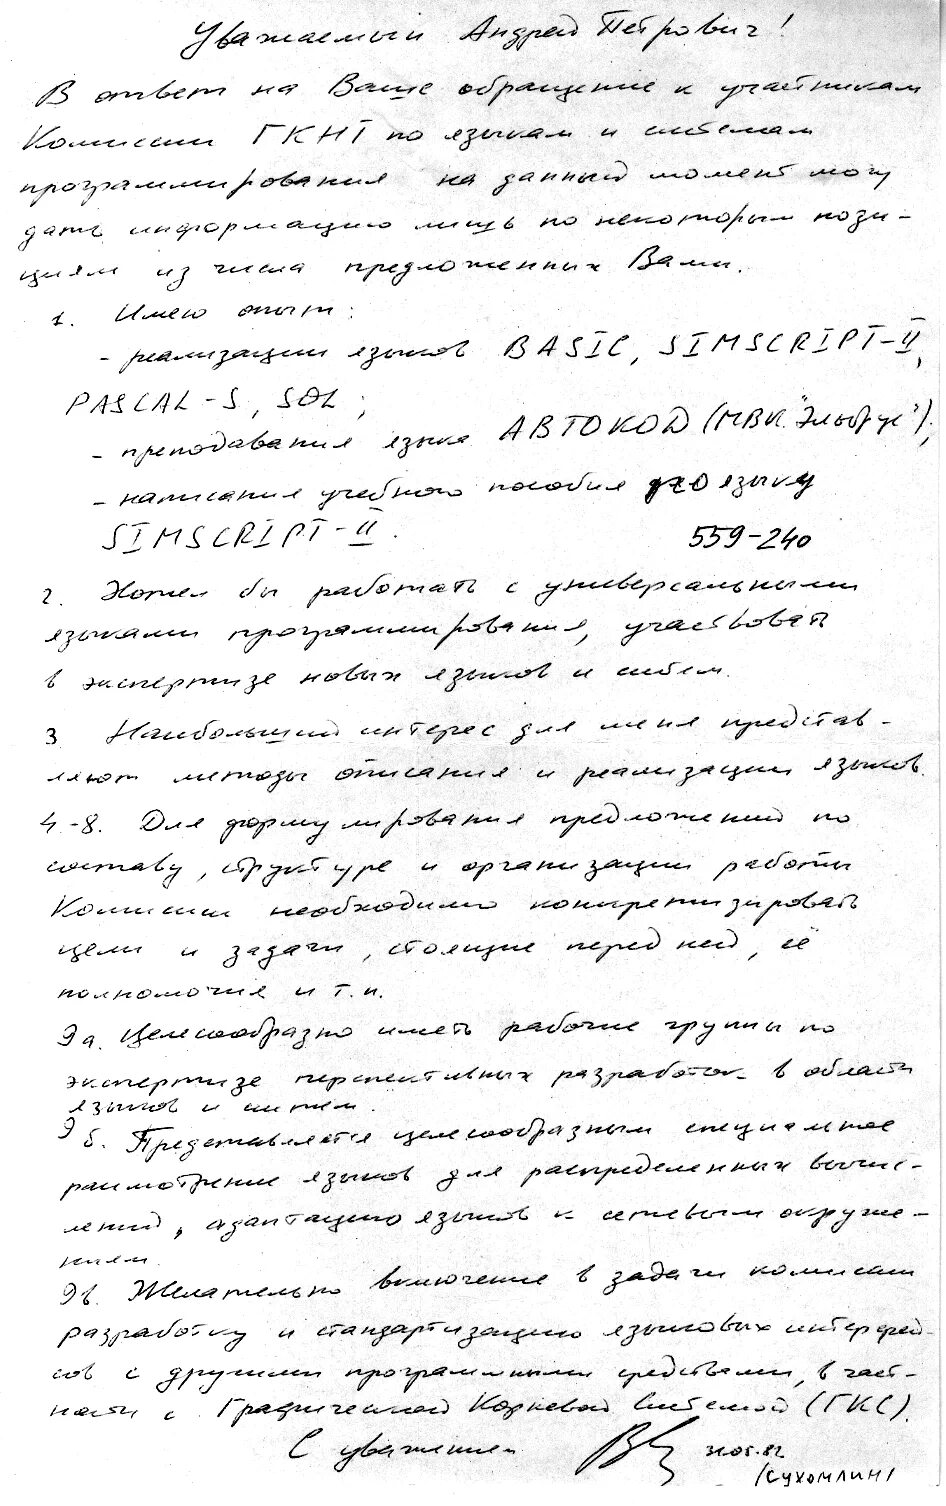 Уважаемый Андрей Петрович!
В ответ на Ваше обращение к участникам
Комиссии ГКНТ по языкам и системам
программирования на данный момент могу
дать информацию лишь по некоторым пози-
циям из числа предложенных Вами.
1. Имею опыт:
- реализации языков BASIC, SIMSCRIPT-II,
PASCAL-S, SOL;
- преподавания языка АВТОКОД (МВК "Эльбрус");
- написания учебного пособия по языку
SIMSCRIPT-II.
559-240
2. Хотел бы работать с универсальными
языками программирования, участвовать
в экспертизе новых языков и систем.
3 Наибольший интерес для меня представ-
ляют методы описания и реализации языков.
4-8. Для формулирования предложений по
составу, структуре и организации работы
Комиссии необходимо конкретизировать
цели и задачи, стоящие перед ней, её
полномочия и т.п.
9а. Целесообразно иметь рабочие группы по
экспертизе перспективных разработок в области
языков и систем.
9б. Представляется целесообразным специальное
рассмотрение языков для распределенных вычис-
лений, адаптацию языков к сетевым окруже-
ниям.
9в. Желательно включение в задачи комиссии
разработку и стандартизацию языковых интерфей-
сов с другими программными средствами, в част-
ности с Графической Корневой Системой (ГКС).
С уважением
31.05.82
/Сухомлин/